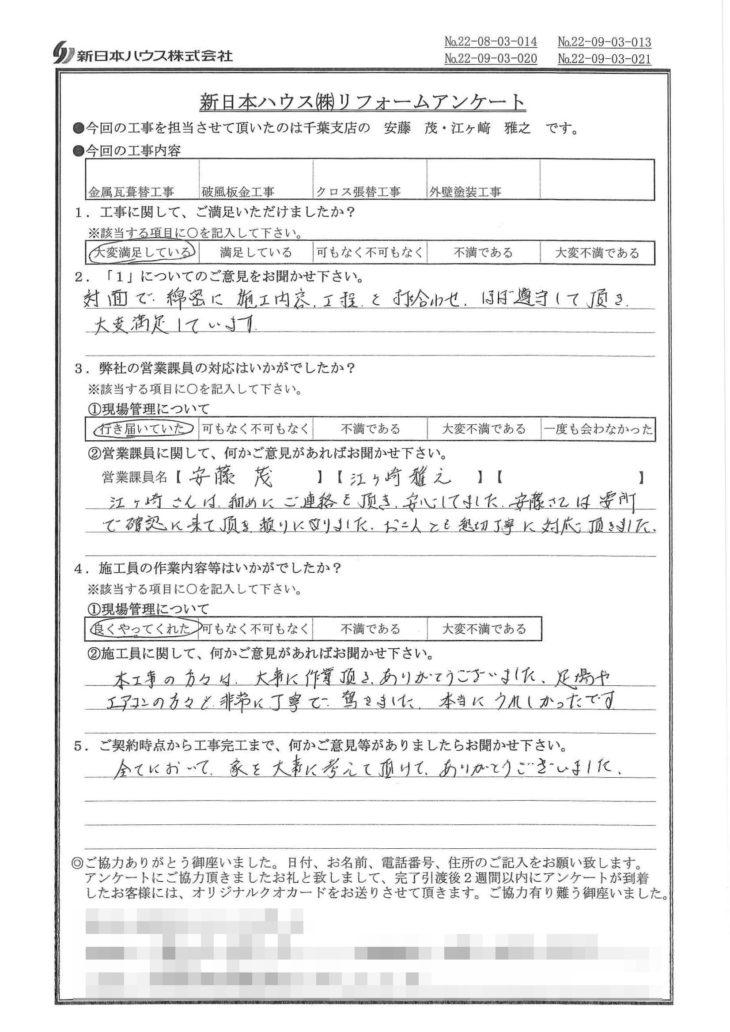 新日本ハウス株式会社
No.22-08-03-014 No.22-09-03-013
No.22-09-03-020 No.22-09-03-021
新日本ハウス㈱リフォームアンケート
●今回の工事を担当させて頂いたのは千葉支店の 安藤 茂・江ヶ﨑 雅之 です。
●今回の工事内容
金属瓦葺替工事 破風板金工事 クロス張替工事 外壁塗装工事
1．工事に関して、ご満足いただけましたか？
※該当する項目に〇を記入して下さい。
大変満足している 満足している 可もなく不可もなく 不満である 大変不満である
2．「1」についてのご意見をお聞かせ下さい。
対面で、綿密に施工内容、工程、と打合わせ、ほぼ遵守して頂き、
大変満足しています。
3．弊社の営業課員の対応はいかがでしたか？
※該当する項目に〇を記入して下さい。
①現場管理について
行き届いていた 可もなく不可もなく 不満である 大変不満である 一度も会わなかった
②営業課員に関して、何かご意見があればお聞かせ下さい。
営業課員名【 安藤 茂 】【 江ヶ崎 雅之 】【 】
江ヶ崎さんは、初めにご連絡を頂き、安心してました。安藤さんは要所
で確認に来て頂き、頼りになりました。お二人とも懇切丁寧に対応頂きました。
4．施工員の作業内容等はいかがでしたか？
※該当する項目に〇を記入して下さい。
①現場管理について
良くやってくれた 可もなく不可もなく 不満である 大変不満である
②施工員に関して、何かご意見があればお聞かせ下さい。
本工事の方々は、大事に作業頂き、ありがとうございました。足場や
エアコンの方々も非常に丁寧で、驚きました。本当にうれしかったです
5．ご契約時点から工事完工まで、何かご意見等がありましたらお聞かせ下さい。
全てにおいて、家を大事に考えて頂けて、ありがとうございました。
◎ご協力ありがとう御座いました。日付、お名前、電話番号、住所のご記入をお願い致します。
アンケートにご協力頂きましたお礼と致しまして、完了引渡後２週間以内にアンケートが到着
したお客様には、オリジナルクオカードをお送りさせて頂きます。ご協力有り難う御座いました。